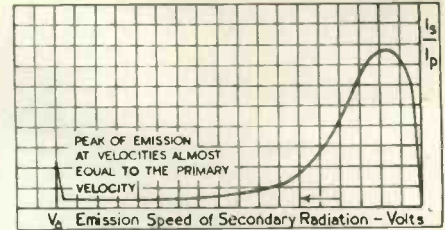 Is
Ip
PEAK OF EMISSION
AT VELOCITIES ALMOST
EQUAL TO THE PRIMARY
VELOCITY
VA Emission Speed of Secondary Radiation - Volts